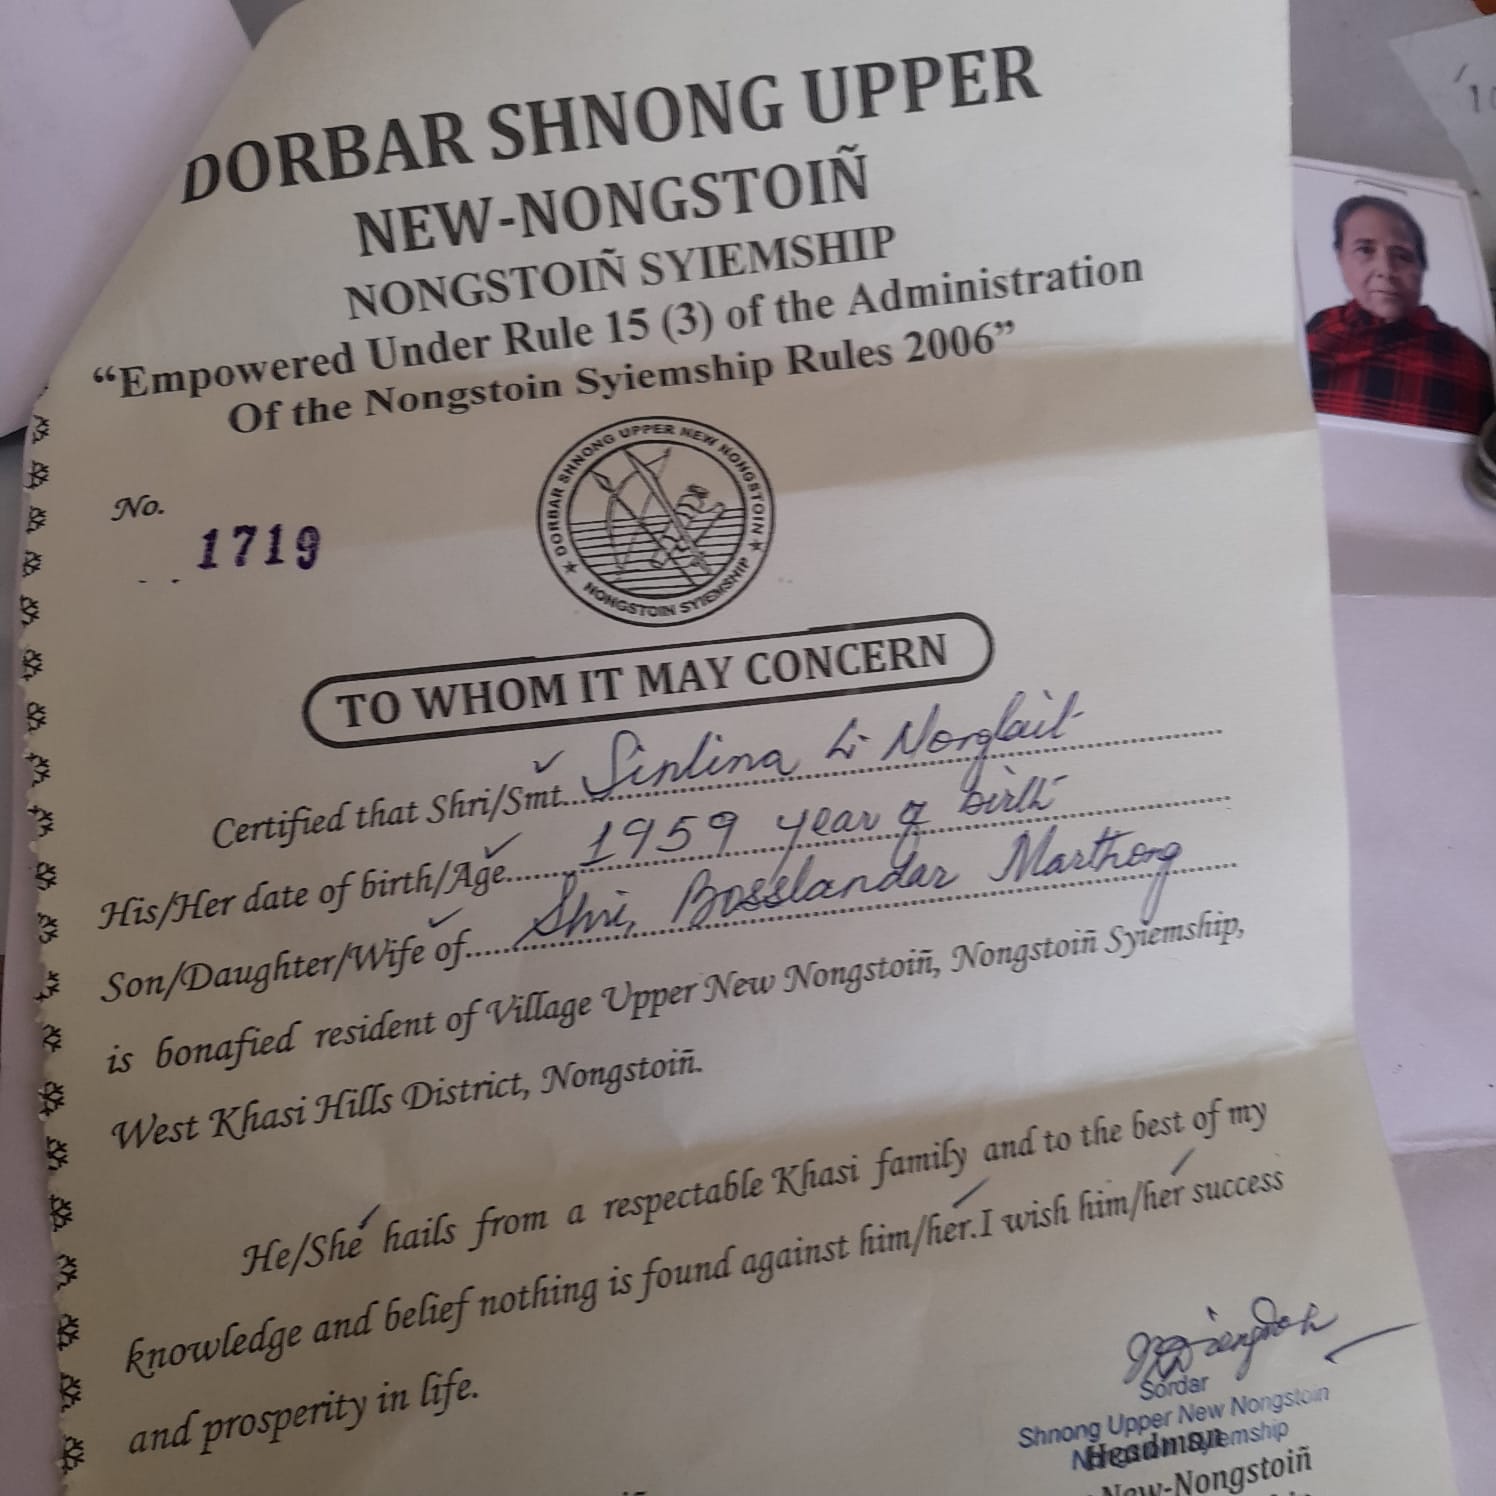 DORBAR SHNONG UPPER
NEW-NONGSTOIÑ
NONGSTOIÑ SYIEMSHIP
“Empowered Under Rule 15 (3) of the Administration
Of the Nongstoin Syiemship Rules 2006”
No.
1719
DORBAR SHNONG UPPER NEW NONGSTOIN
NONGSTOIN SYIEMSHIP
TO WHOM IT MAY CONCERN
Certified that Shri/Smt. Sinlina Li Nonglait
His/Her date of birth/Age 1959 year of birth
Son/Daughter/Wife of Shri, Bosslandar Marthong
is bonafied resident of Village Upper New Nongstoiñ, Nongstoiñ Syiemship,
West Khasi Hills District, Nongstoiñ.
He/She hails from a respectable Khasi family and to the best of my
knowledge and belief nothing is found against him/her.I wish him/her success
and prosperity in life.
Sordar
Shnong Upper New Nongstoin
Headman
New-Nongstoiñ